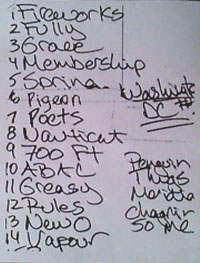 1 Fireworks
2 Fully
3 Grace
4 Membership
5 Spring
6 Pigeon
7 Poets
8 Nautical
9 700 Ft
10 ABAC
11 Greasy
12 Rules
13 New O
14 Vapour
Washingt
DC #!
Penguin
I was
Chagrin
50 ME